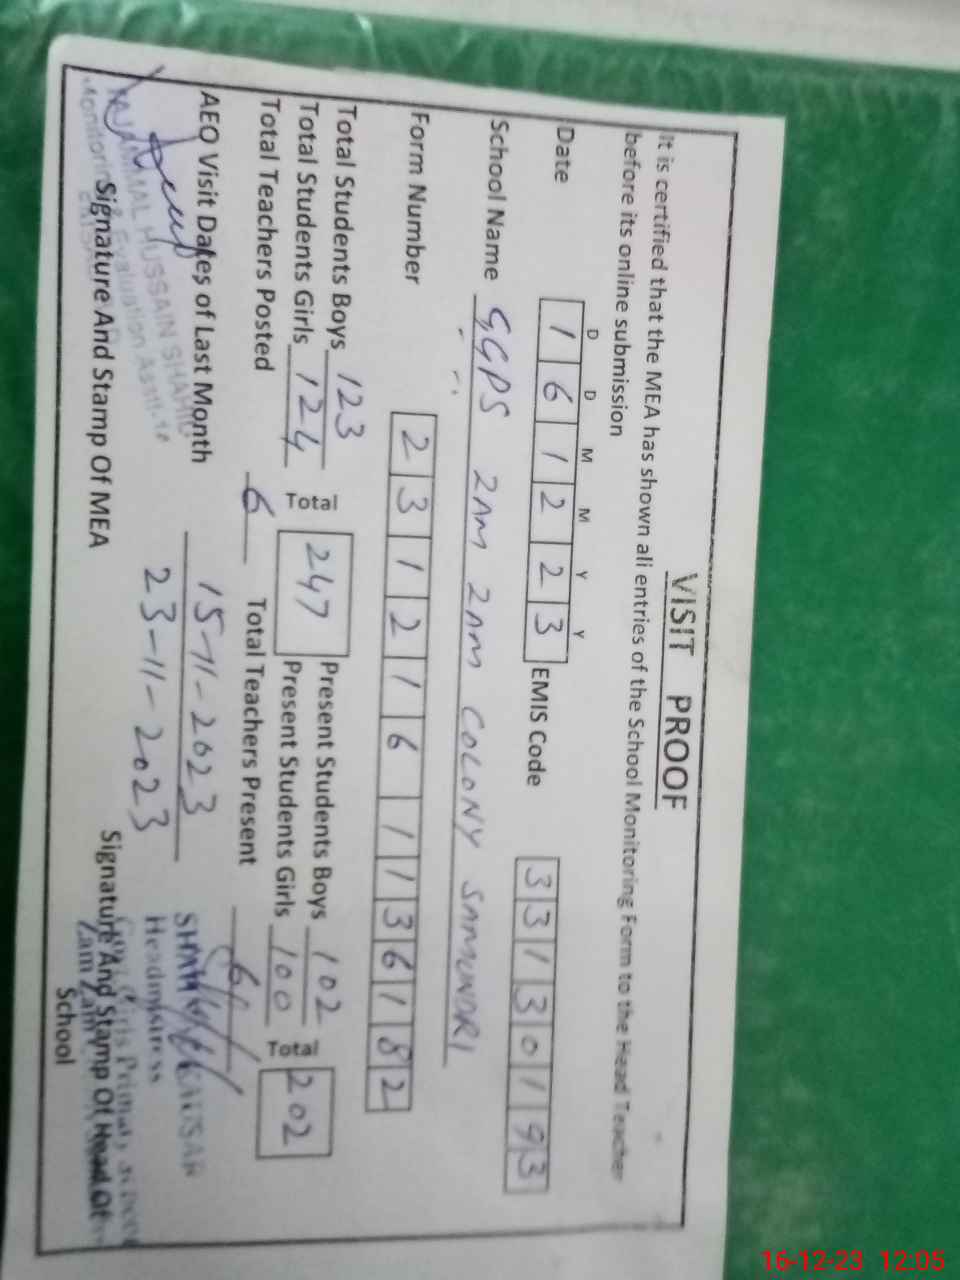 VISIT PROOF
It is certified that the MEA has shown all entries of the School Monitoring Form to the Head Teacher
before its online submission
D D M M Y Y
Date 1 6 1 2 2 3 EMIS Code 3 3 1 3 0 1 9 3
School Name GGPS 2AM 2AM COLONY SAMUNDRI
Form Number 2 3 1 2 1 6 1 1 3 6 1 8 2
Total Students Boys 123 Total 247 Present Students Boys 102 Total 202
Total Students Girls 124 Present Students Girls 100
Total Teachers Posted 6 Total Teachers Present 6
AEO Visit Dates of Last Month 15-11-2023
23-11-2023
HUSSAIN
Monitoring & Evaluation Asstt.
KAUSAR
Headmistress
Girls Primary
Signature And Stamp Of MEA
Signature And Stamp Of Head Of
School
16-12-23 12:05